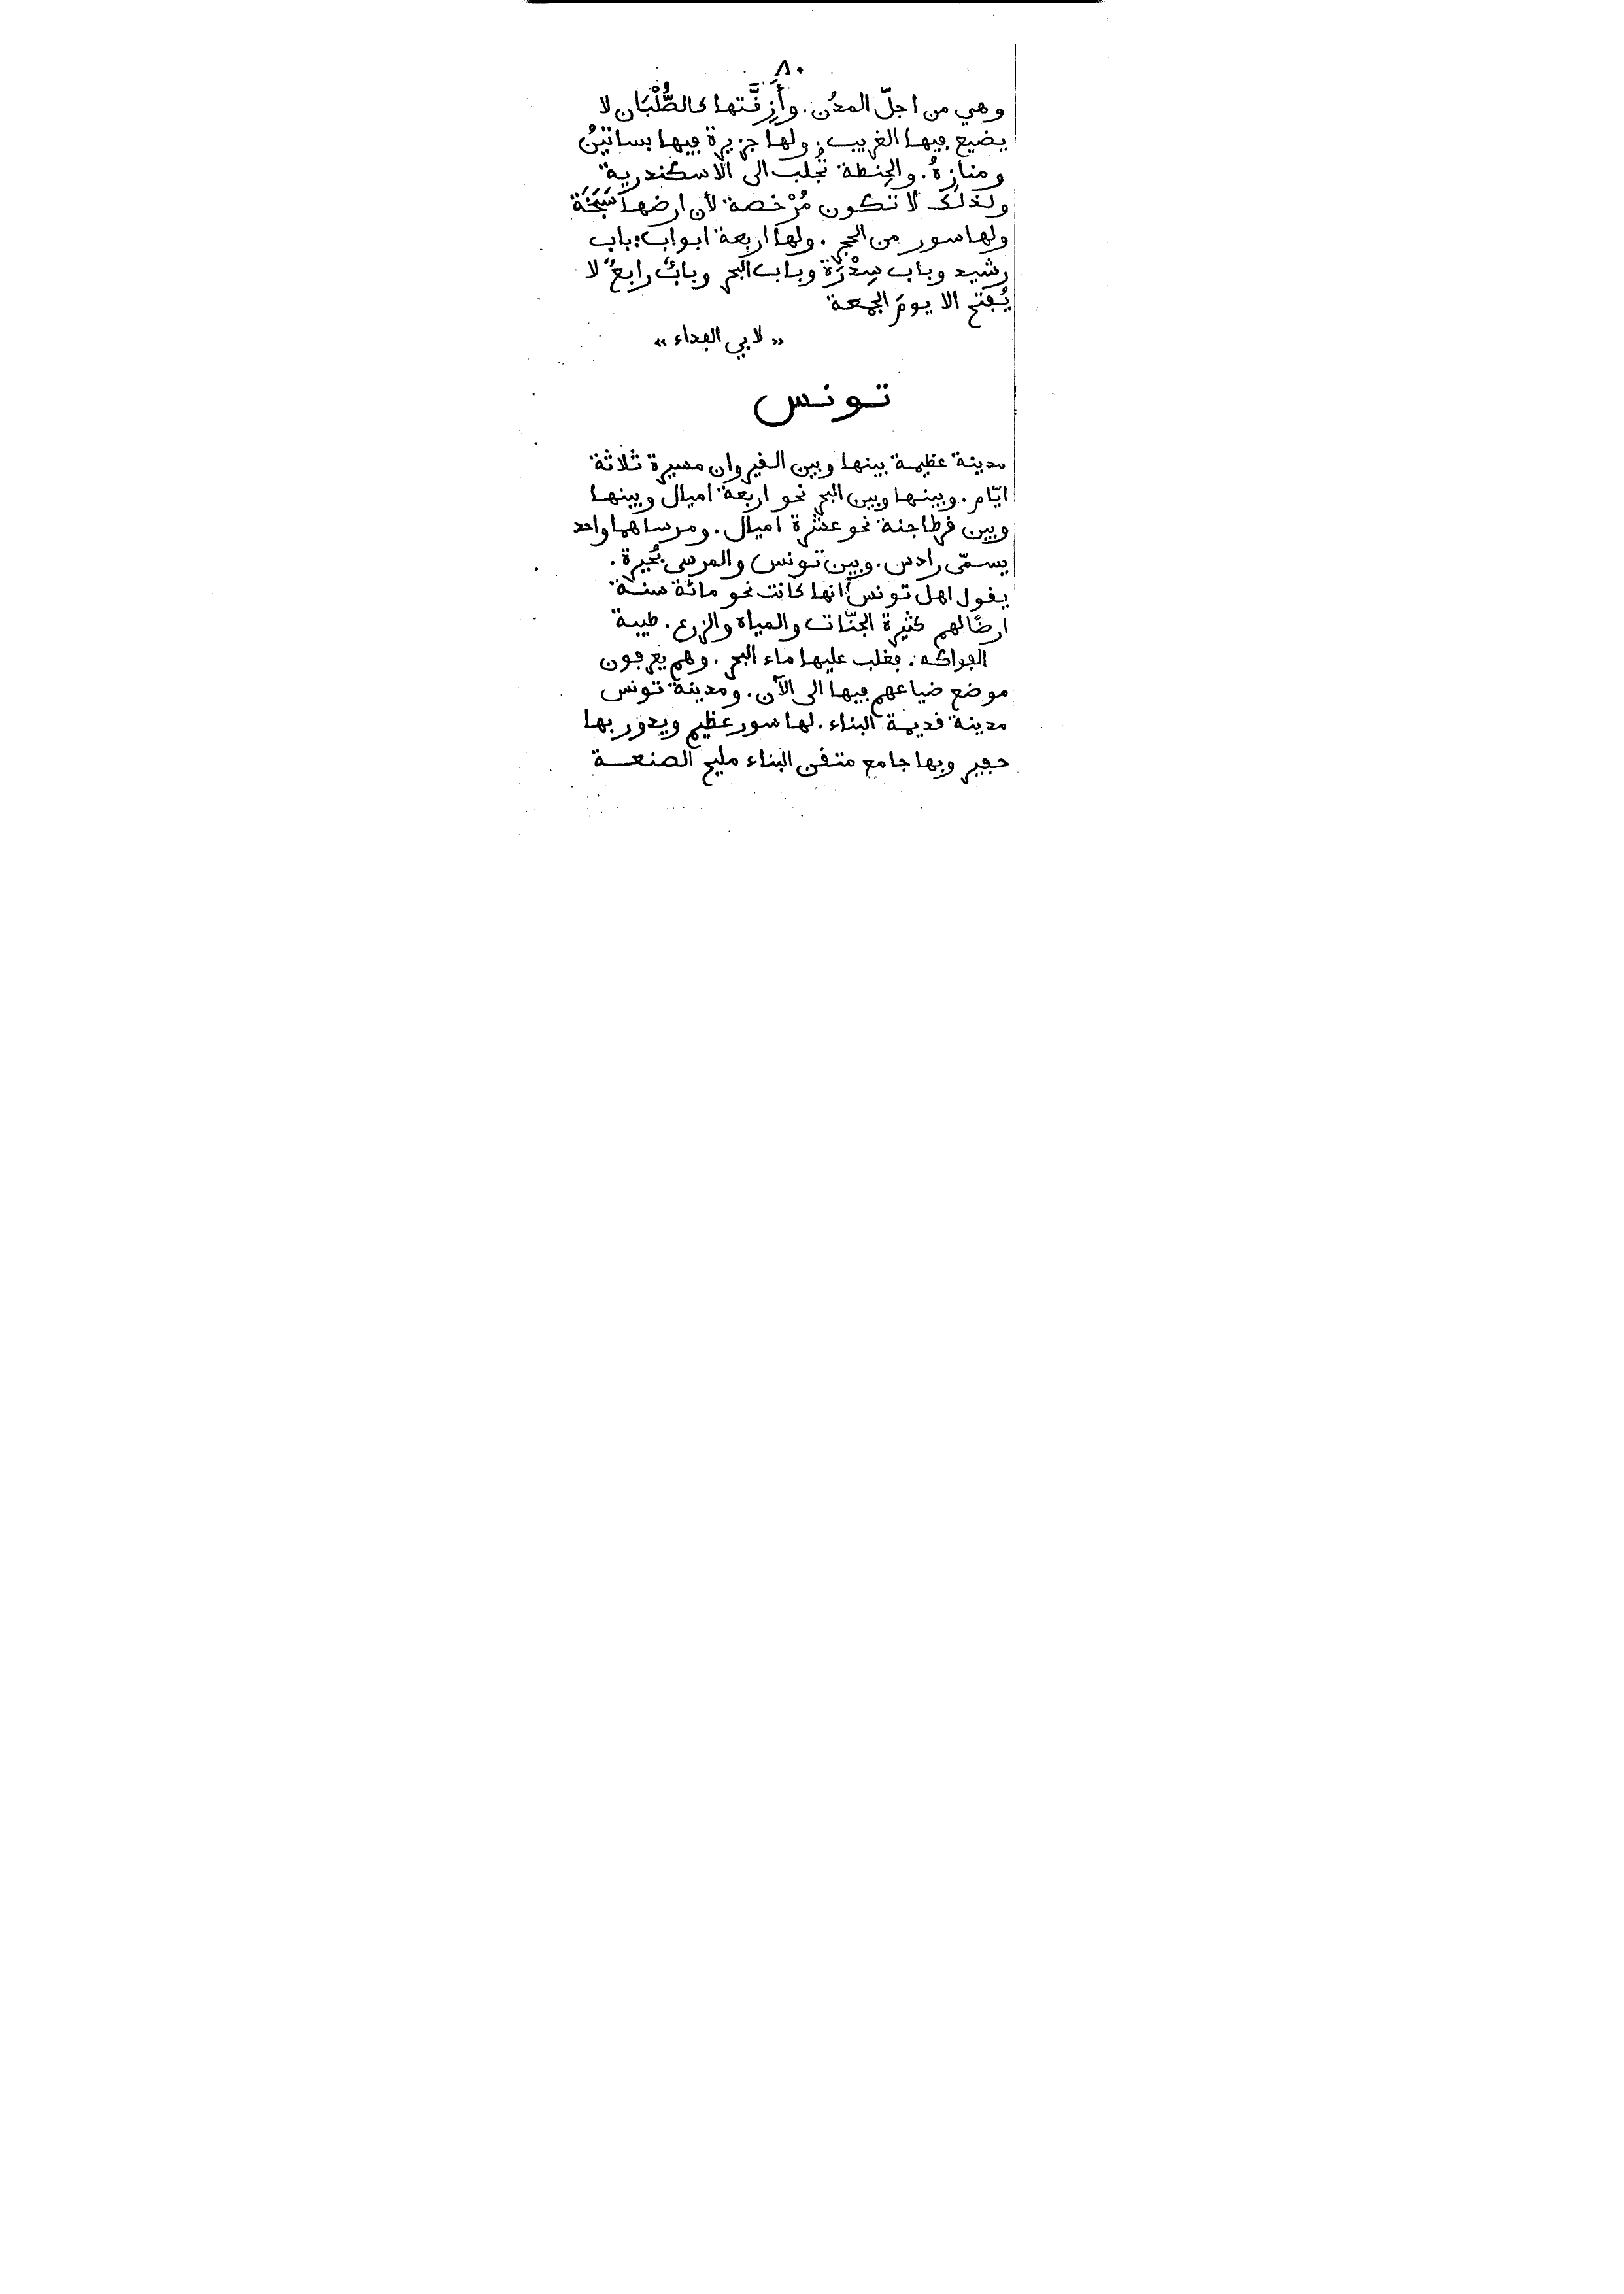 ٨٠
وهي من اجلّ المدُن. وأَزِقَّتها كالصُّلْبَان لا
يضيع فيها الغريب. ولها جزيرة فيها بساتينُ
ومنازِهُ. والحِنطة تُجلب الى الاسكندرية
ولذلك لا تكون مُرْخصة لأن ارضها سَبَخَة
ولها سور من الحجر. ولها اربعة ابواب: باب
رشيد وباب سِدْرَة وباب البحر وبابٌ رابعٌ لا
يُفتح الا يومَ الجمعة
« لابي الفداء »
تونس
مدينة عظيمة بينها وبين القيروان مسيرة ثلاثة
ايّام. وبينها وبين البحر نحو اربعة اميال وبينها
وبين قرطاجنة نحو عشرة اميال. ومرساهما واحد
يسمّى رادس. وبين تونس والمرسى بُحيرة.
يقول اهل تونس انها كانت نحو مائة سنة
ارضًا لهم كثيرة الجنّات والمياه والزرع. طيبة
الفواكه. فغلب عليها ماء البحر. وهم يعرفون
موضع ضياعهم فيها الى الآن. ومدينة تونس
مدينة قديمة البناء. لها سور عظيم ويدور بها
حفير وبها جامع متقن البناء مليح الصنعة